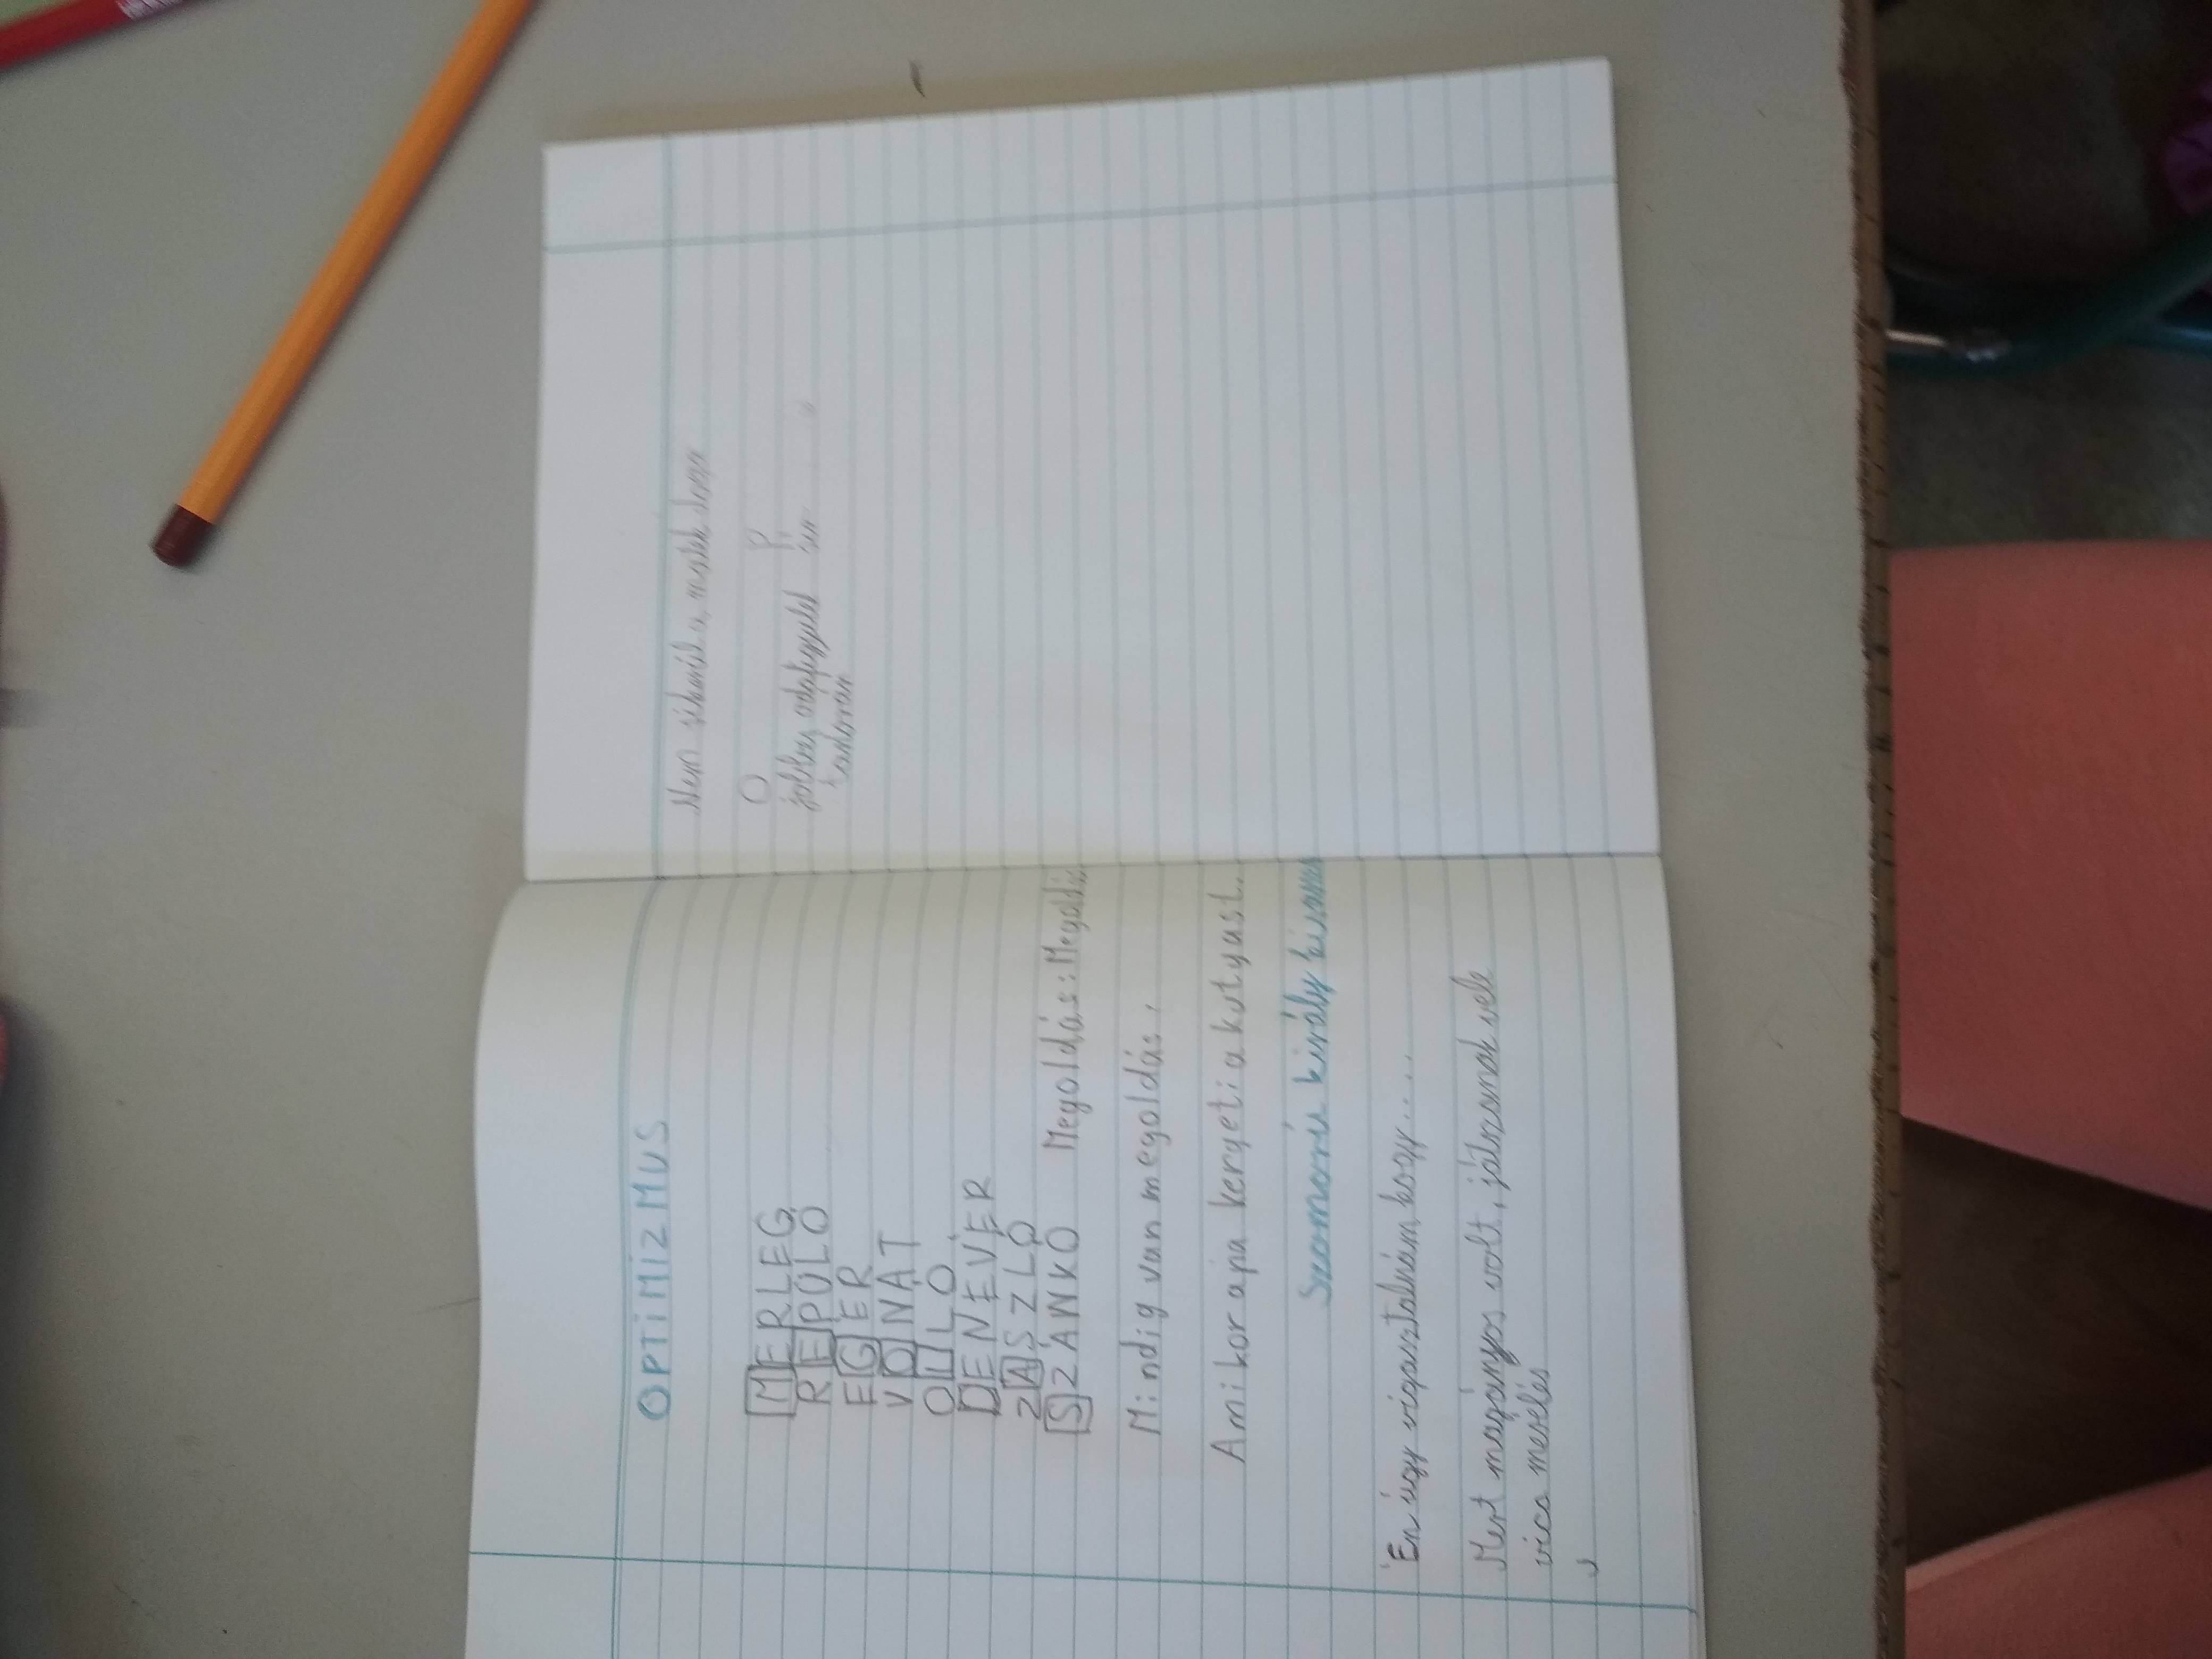 OPTiMiZMUS
MÉRLEG
REPÜLŐ
EGÉR
VONAT
OLLÓ
DENEVÉR
ZÁSZLÓ
SZÁNKÓ Megoldás: Megoldás
Mindig van megoldás.
Amikor apa kergeti a kutyust.
Szomorú király
Én úgy vigasztalnám, hogy.....
Mert magányos volt, játszanák vele
vicc mesélés
Nem sikerült a
O P
jobban odafigyelek
tanórán